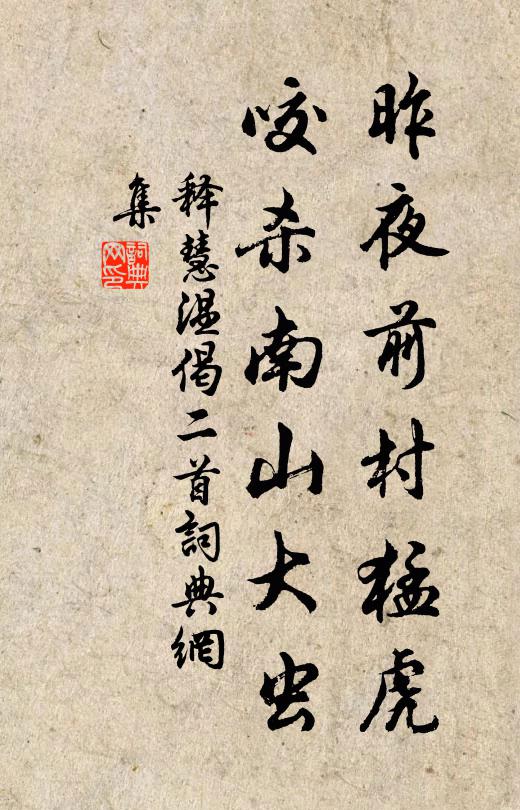 昨夜前村猛虎
咬杀南山大虫
释慧温偈二首詞典網
集
詞典
网印